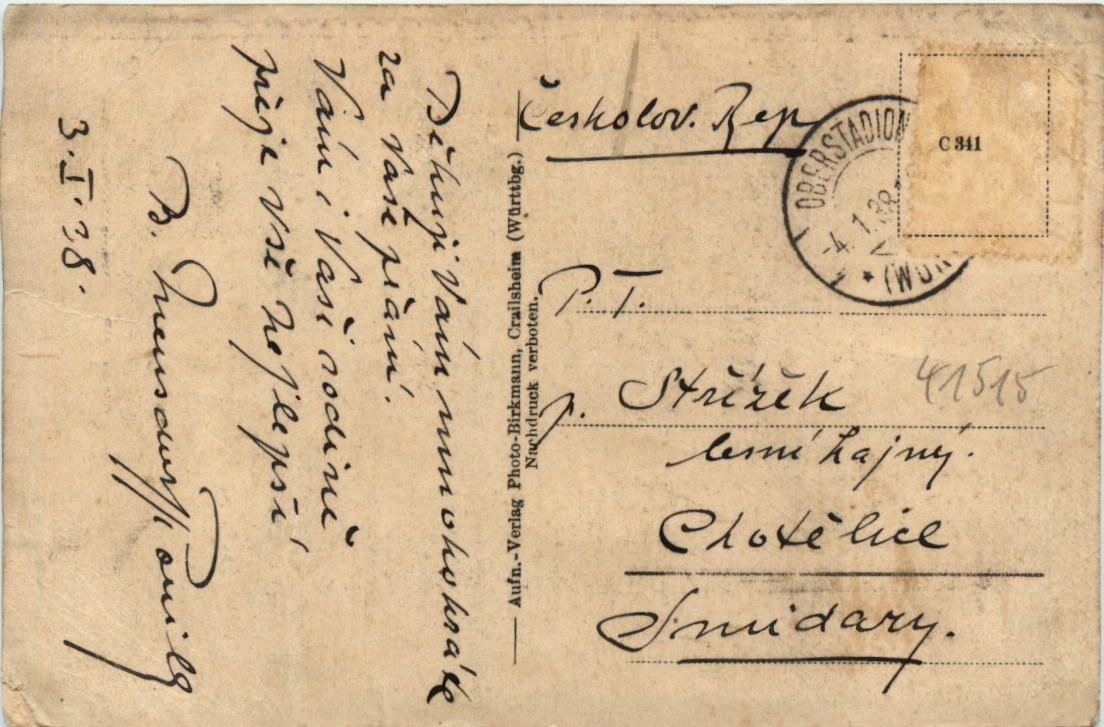 Děkuji Vám mnohokráte
za Vaše přání.
Vám i Vaší rodině
přeje vše nejlepší
B.
3.I.38.
Aufn.-Verlag Photo-Birkmann, Crailsheim (Württbg.)
Nachdruck verboten.
Českoslov. Rep
OBERSTADION
-4.1.38
(WÜR
C 341
P. T.
p. Střížěk
41515
lesní hajný.
Chotělice
Smidary.